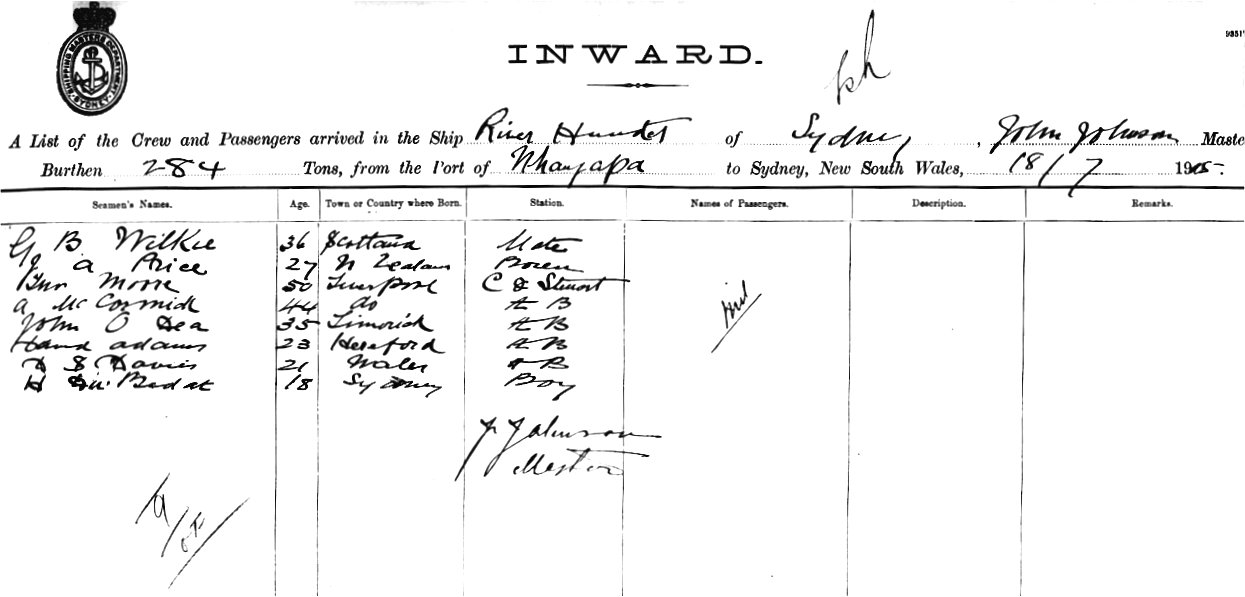 SHIPPING MASTERS DEPARTMENT
SYDNEY
INWARD.
A List of the Crew and Passengers arrived in the Ship River Hunter of Sydney, John Johnson Maste
Burthen 284 Tons, from the Port of Whangapa to Sydney, New South Wales, 18/7 1905.
Seamen's Names. Age. Town or Country where Born. Station. Names of Passengers. Description. Remarks.
G B Wilkie 36 Scotland Mate
J a Price 27 N Zealand Bosen
Moore 50 Liverpool C & Steward
a McCormick 44 do A B
John O Dea 35 Limerick A B
adams 23 Hereford A B
D S Davies 21 Wales A B
H 18 Sydney Boy
nil
J Johnson
Master